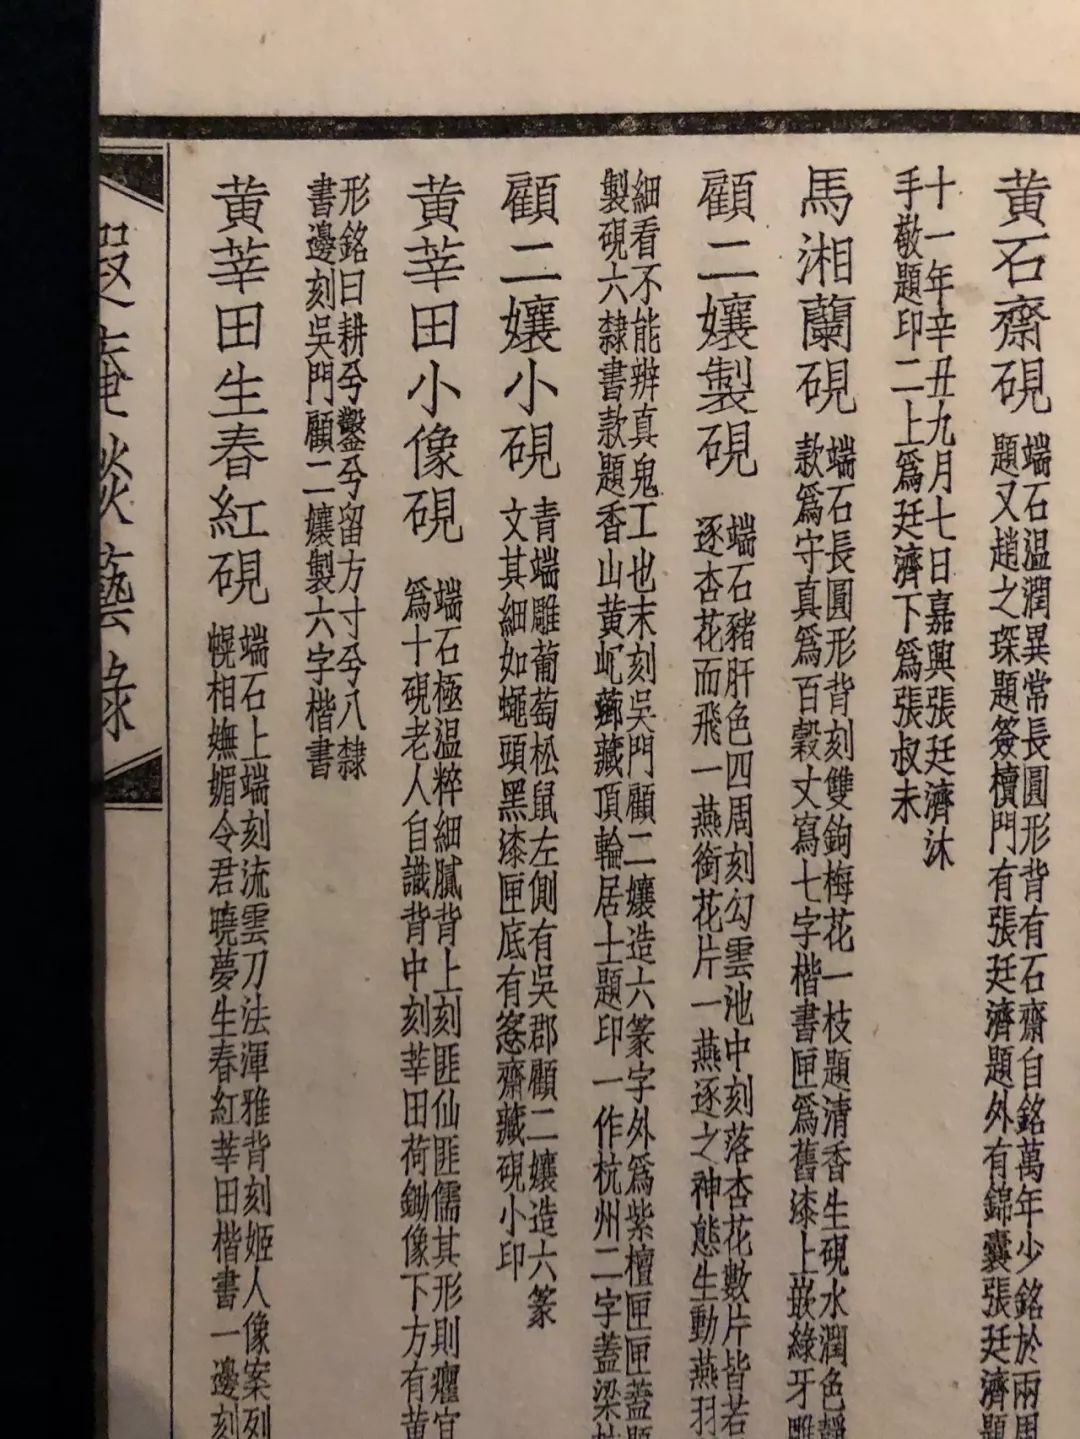 黃石齋硯
端石温潤異常長圓形背有石齋自銘萬年少銘於兩周
題又趙之琛題簽櫝門有張廷濟題外有錦囊張廷濟題
十一年辛丑九月七日嘉興張廷濟沐
手敬題印二上爲廷濟下爲張叔未
馬湘蘭硯
端石長圓形背刻雙鉤梅花一枝題清香生硯水潤色
款爲守真爲百穀丈寫七字楷書匣爲舊漆上嵌綠牙雕
顧二孃製硯
端石豬肝色四周刻勾雲池中刻落杏花數片皆若
逐杏花而飛一燕銜花片一燕逐之神態生動燕羽
細看不能辨真鬼工也末刻吳門顧二孃造六篆字外爲紫檀匣匣蓋題
製硯六隸書款題香山黃屺薌藏頂輪居士題印一作杭州二字蓋梁
顧二孃小硯
青端雕葡萄松鼠左側有吳郡顧二孃造六篆
文其細如蠅頭黑漆匣底有愙齋藏硯小印
黃莘田小像硯
端石極温粹細膩背上刻匪仙匪儒其形則癯宜
爲十硯老人自識背中刻莘田荷鋤像下方有黃
形銘曰耕兮鑿兮留方寸兮八隸
書邊刻吳門顧二孃製六字楷書
黃莘田生春紅硯
端石上端刻流雲刀法渾雅背刻姬人像案列
幌相嫵媚令君曉夢生春紅莘田楷書一邊刻
遐庵談藝錄